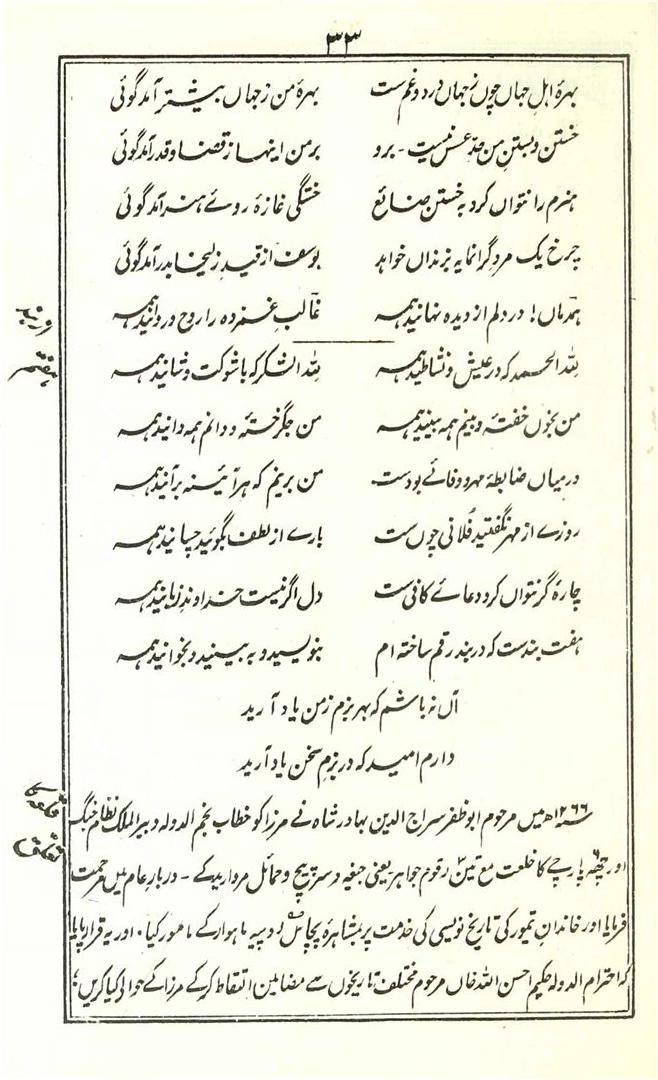 ۳۳
بہرۂ اہلِ جہاں چوں زجہاں درد و غم ست بہرۂ من زجہاں بیشتر آمد گوئی
خستن و بستنِ من حدِّ عسس نیست ۔ برو بر من اینہا ز قضا و قدر آمد گوئی
ہنرم را نتواں کرد بہ خستن ضائع خستگی غازۂ روے ہنر آمد گوئی
چرخ یک مردِ گرانمایہ بزنداں خواہد یوسف از قیدِ زلیخا بدر آمد گوئی
ہمدماں! در دلم از دیدہ نہانید ہمہ غالبِ غمزدہ را روح و روانید ہمہ
للہ الحمد کہ در عیش و نشاطید ہمہ للہ الشکر کہ با شوکت و شانید ہمہ
من بخوں خفتہ و بینم ہمہ بینید ہمہ من جگر خستہ و دانم ہمہ دانید ہمہ
درمیاں ضابطۂ مہر و وفائے بودست من برینم کہ ہر آئینہ برآنید ہمہ
روزے از مہر نگفتید فلانی چوں ست بارے از لطف بگوئید چسانید ہمہ
چارہ گر نتواں کرد دعائے کافی ست دل اگر نیست خداوندِ زبانید ہمہ
ہفت بندست کہ در بند رقم ساختہ ام بنویسید و بہ بینید و بخوانید ہمہ
آں نہ باشم کہ بہر بزم زمن یاد آرید
دارم امید کہ در بزمِ سخن یاد آرید
۱۲۶۶ھ میں مرحوم ابو ظفر سراج الدین بہادر شاہ نے مرزا کو خطاب نجم الدولہ دبیر الملک نظام جنگ
اور چھہ پارچے کا خلعت مع تین رقوم جواہر یعنی جیغہ و سرپیچ و حمائل مروارید کے ۔ دربارِ عام میں مرحمت
فرمایا اور خاندانِ تیمور کی تاریخ نویسی کی خدمت پر بمشاہرۂ پچاس روپیہ ماہوار کے مامور کیا ۔ اور یہ قرار پایا
کہ احترام الدولہ حکیم احسن اللہ خاں مرحوم مختلف تاریخوں سے مضامین التقاط کر کے مرزا کے حوالے کیا کریں ؛
بند ہفتم
قلعہ کا تعلق